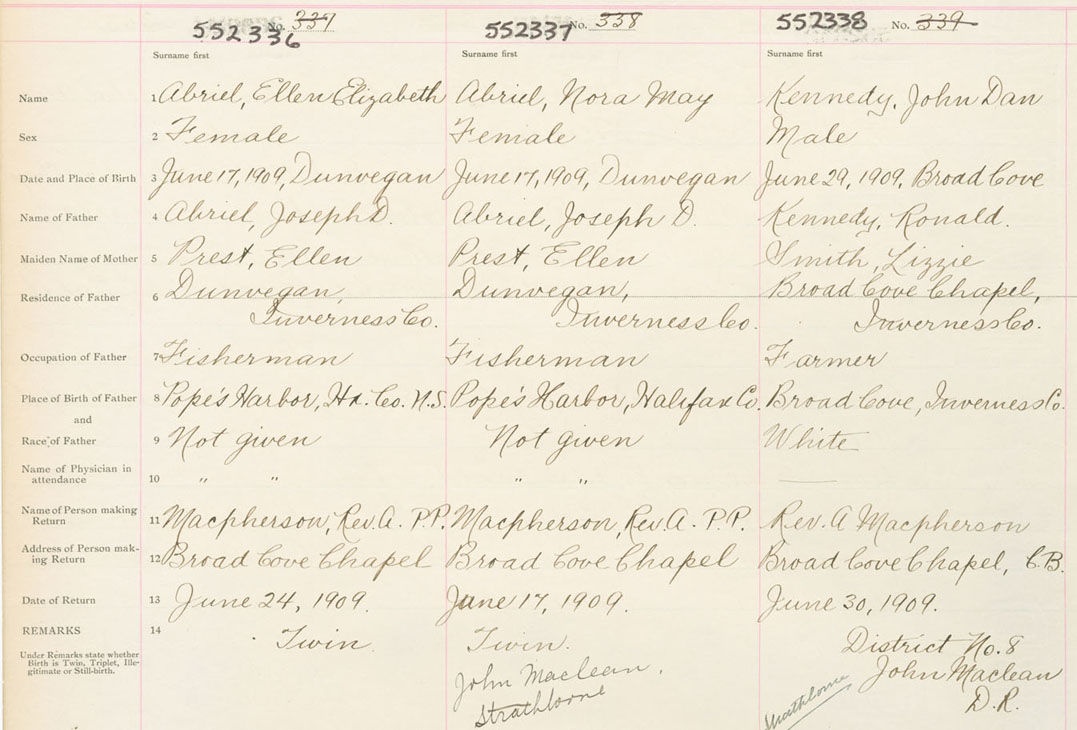 552336 No. 337 552337 No. 338 552338 No. 339
Surname first Surname first Surname first
Name 1 Abriel, Ellen Elizabeth Abriel, Nora May Kennedy, John Dan
Sex 2 Female Female Male
Date and Place of Birth 3 June 17, 1909, Dunvegan June 17, 1909, Dunvegan June 29, 1909, Broad Cove
Name of Father 4 Abriel, Joseph D. Abriel, Joseph D. Kennedy, Ronald.
Maiden Name of Mother 5 Prest, Ellen Prest, Ellen Smith, Lizzie
Residence of Father 6 Dunvegan, Dunvegan, Broad Cove Chapel,
Inverness Co. Inverness Co. Inverness Co.
Occupation of Father 7 Fisherman Fisherman Farmer
Place of Birth of Father 8 Pope's Harbor, Hx. Co. N.S. Pope's Harbor, Halifax Co. Broad Cove, Inverness Co.
and
Race of Father 9 Not given Not given White
Name of Physician in
attendance 10 " " " "
Name of Person making
Return 11 Macpherson, Rev. A. P.P. Macpherson, Rev. A. P.P. Rev. A Macpherson
Address of Person mak-
ing Return 12 Broad Cove Chapel Broad Cove Chapel Broad Cove Chapel, C.B.
Date of Return 13 June 24, 1909. June 17, 1909. June 30, 1909.
REMARKS 14 Twin. Twin. District No. 8
Under Remarks state whether
Birth is Twin, Triplet, Ille-
gitimate or Still-birth.
John Maclean, John Maclean
Strathlorne Strathlorne D.R.